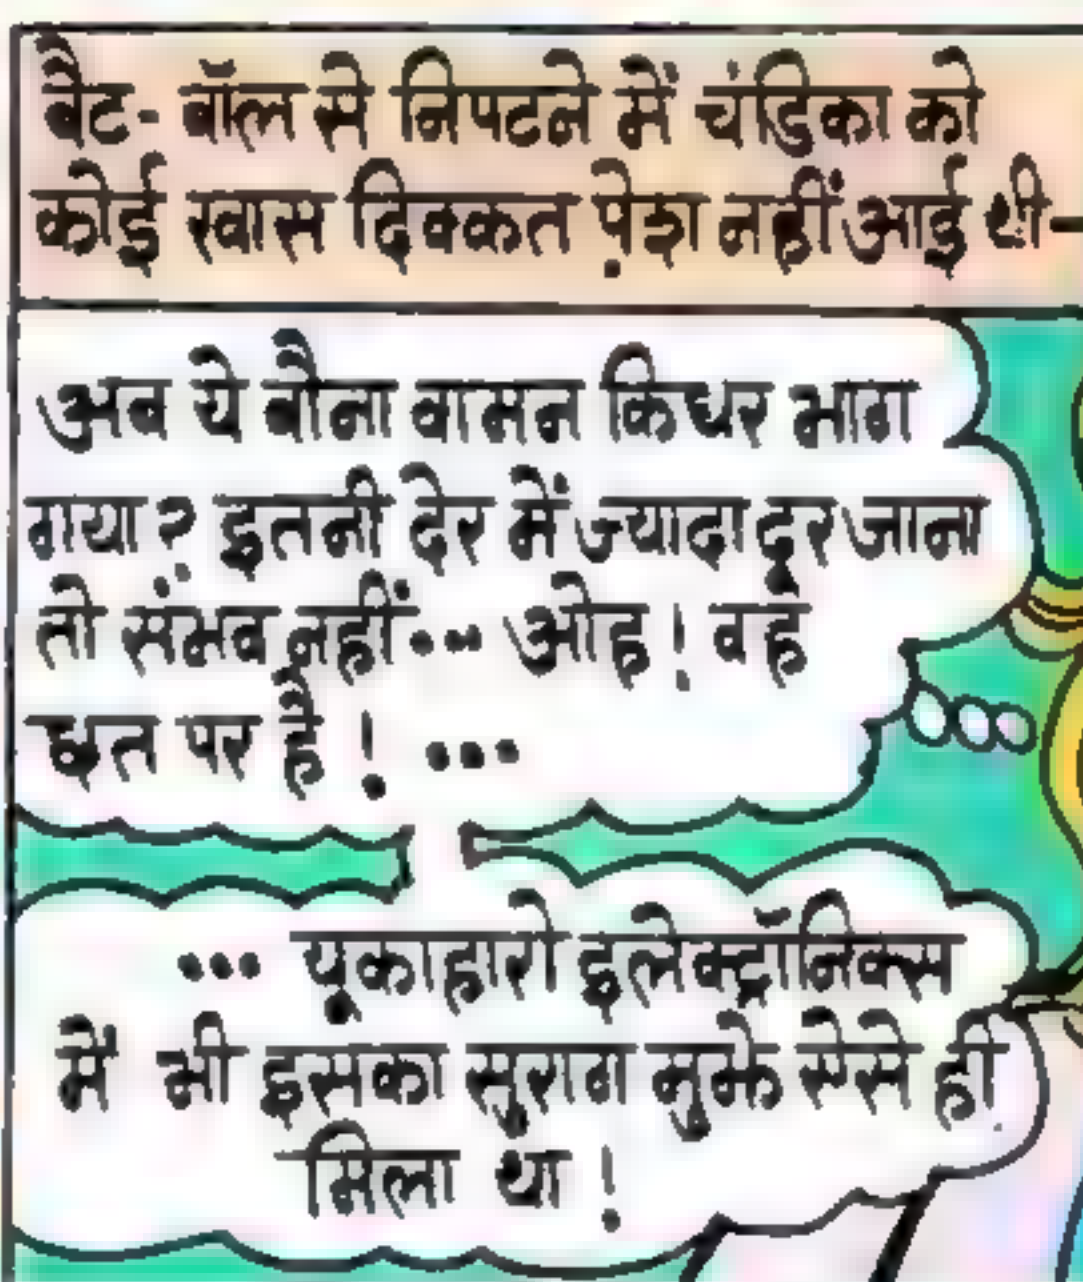 बैट- बॉल से निपटने में चंडिका को
कोई खास दिक्कत पेश नहीं आई थी-
अब ये बौना वामन किधर भाग
गया? इतनी देर में ज्यादा दूर जाना
तो संभव नहीं... ओह! वह
छत पर है! ...
... यूकाहारो इलेक्ट्रॉनिक्स
में भी इसका सुराग मुझे ऐसे ही
मिला था!